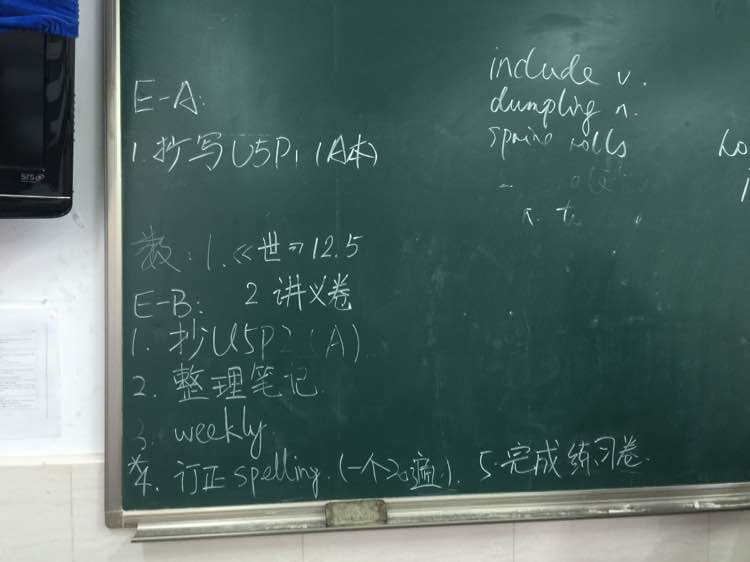 E-A:
1. 抄写U5P1 (A本)
数: 1. 《世》12.5
2 讲义卷
E-B:
1. 抄U5P2 (A)
2. 整理笔记
3. weekly
4. 订正spelling. (一个20遍). 5.完成练习卷.
include v.
dumpling n.
spring rolls